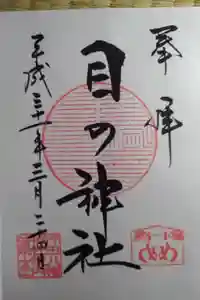 奉拝
目の神社
平成三十一年三月二十四日
め